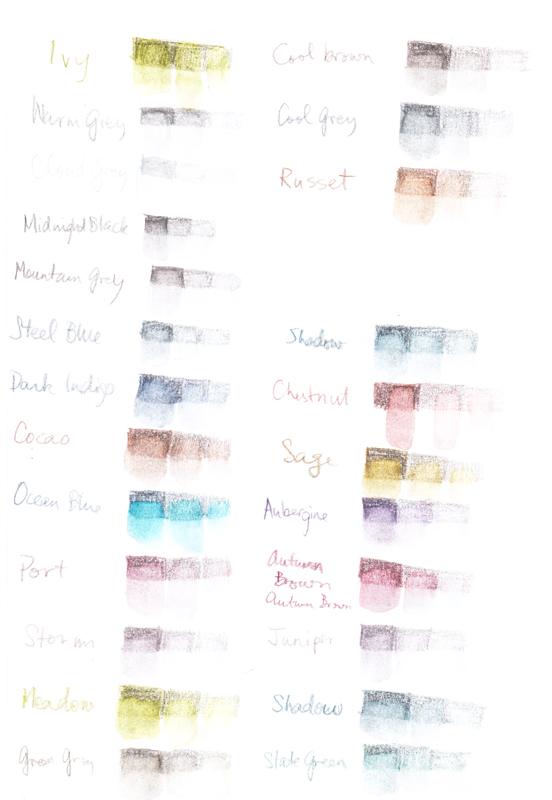 Ivy
Warm Grey
Cloud Grey
Midnight Black
Mountain Grey
Steel Blue
Dark Indigo
Cocoa
Ocean Blue
Port
Storm
Meadow
Green Grey
Cool brown
Cool Grey
Russet
Shadow
Chestnut
Sage
Aubergine
Autumn
Brown
Autumn Brown
Juniper
Shadow
Slate Green